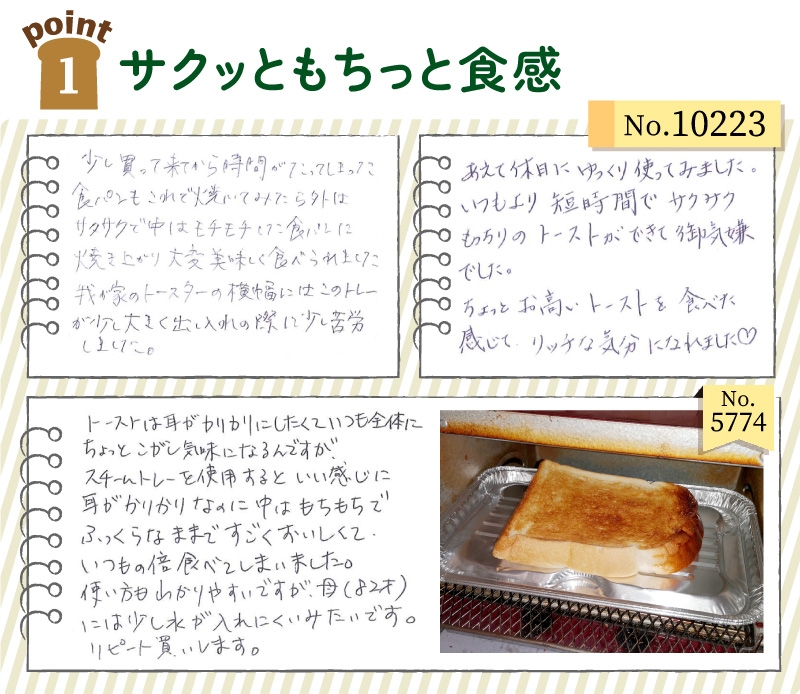 point
1
サクッともちっと食感
少し買って来てから時間がたってしまった
食パンもこれで焼いてみたら外は
サクサクで中はモチモチした食パンに
焼き上がり大変美味しく食べられました
我が家のトースターの横幅にはこのトレー
が少し大きく出し入れの際に少し苦労
しました。
No.10223
あえて休日にゆっくり使ってみました。
いつもより短時間でサクサク
もっちりのトーストができて御気嫌
でした。
ちょっとお高いトーストを食べた
感じで、リッチな気分になれました♡
No.
5774
トーストは耳がカリカリにしたくていつも全体に
ちょっとこがし気味になるんですが、
スチームトレーを使用するといい感じに
耳がカリカリなのに中はもちもちで
ふっくらなままですごくおいしくて、
いつもの倍食べてしまいました。
使い方もわかりやすいですが、母(82才)
には少し水が入れにくいみたいです。
リピート買いします。